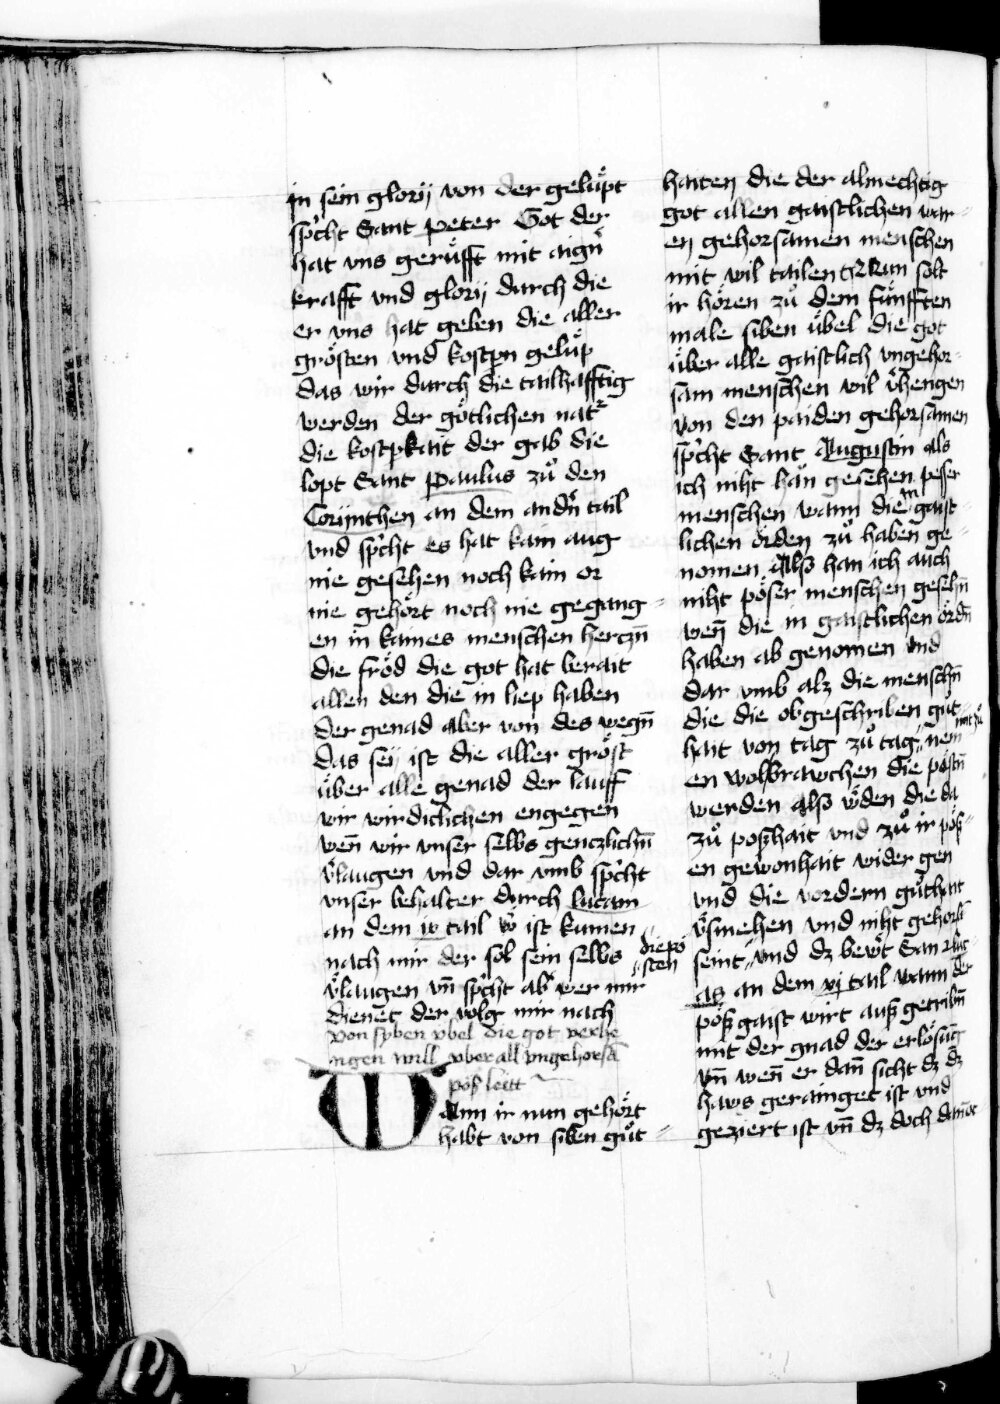 in sein glorij von der gelüpt
spͥcht Sant peter Got der
hat vns gerüfft mit aigñ
krafft vnd glorij durch die
er vns hat geben die aller
grösten vnd kostpñ gelüp
das wir durch die tailhafftig
werden der götlichen natͬ
die kostpkait der gab die
lopt Sant paulus zuͦ den
Corijnthen an dem andñ tail
vnd spͥcht es hat kain aug
nie gesehen noch kain or
nie gehört noch nie gegang=
en in kaines menschen herczñ
die fröd die got hat berait
allen den die in liep haben
der genad aber von des wegñ
das sej ist die aller gröst
über alle genad der lauff
wir wirdiclichen engegen
weñ wir vnser selbs genczlichñ
v̾laugen vnd dar vmb spͥcht
vnser behalter durch lucam
an dem ix tail w̾ ist kumen
nach mir der sol sein selbs
v̾laugen vñ spͥcht ab̾ wer mir
dienet der volg mir nach
Von syben vbel die got verhe
ngen will vber all vngehorsã
pöß leütt
Ann ir nun gehört
habt von siben guͦt=
haiten die der almechtig
got allen gaistlichen war=
en gehorsamen menschen
mit wil tailen Nun solt
ir hören zuͦ dem fünfften
male siben übel die got
über alle gaistlich vngehor=
sam menschen wil v̾hengen
von den paiden gehorsamen
spͥcht Sant Augustin als
ich niht han gesehen pesser
menschen wann die in gaist=
lichen örden zuͦ haben ge=
nomen Also han ich auch
niht pöser menschen gesehñ
weñ die in gaistlichen ördñ
haben ab genomen vnd
dar vmb alz die menschñ
die die obgeschriben guͦt
hait von tag zuͦ tag nem
mit zuͦ
en wolbrawchen die pöstñ
werden also w̾den die da
die pö
sten
zuͦ poßhait vnd zuͦ ir pöß=
en gewonhait wider gen
vnd die vordern guͦthait
v̾smehen vnd niht gehorsã
seint vnd dz bewͤt San luc
as an dem vj tail wann der
pöß gaist wirt auß getribñ
mit der gnad der erlösung
vñ weñ er dañ sicht dz dz
haws gerainget ist vnd
geziert ist vñ dz doch